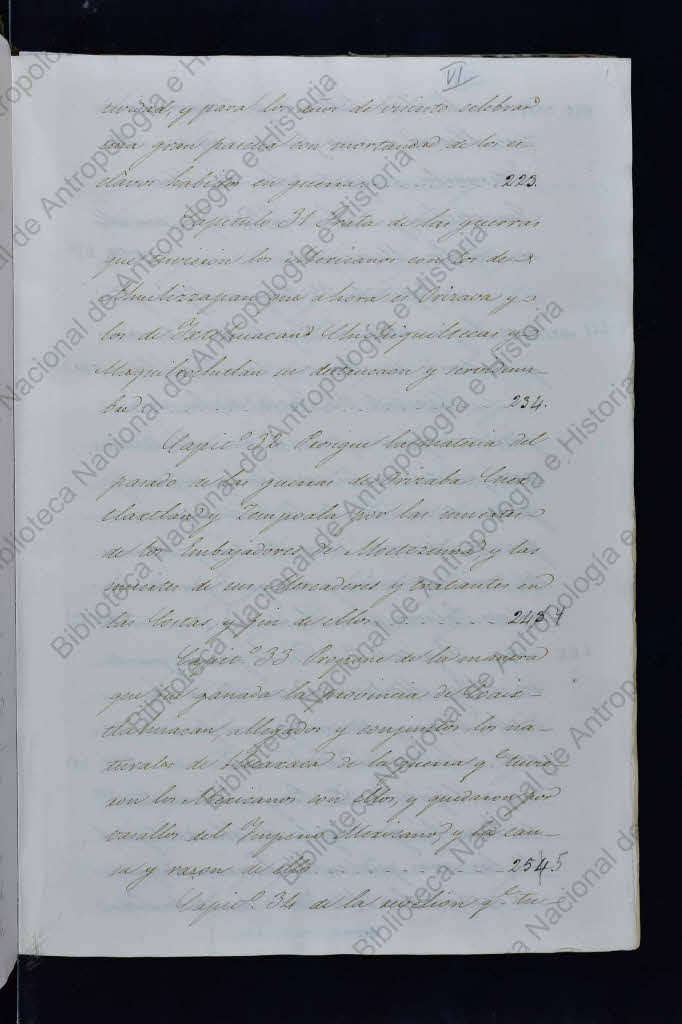 VI
tividad, y para los años de viento celebrar
se una gran pascua con mortandad de los es
clavos habidos en guerra. 223.
Capitulo 31 Trata de las guerras
que tuvieron los Mexicanos con los de
Ahuilizzapan que ahora es Orizava y
los de
en destruccion y servidum-
bre 234.
Capit.º 32 Prosigue la materia del
pasado de las guerras de Orizaba Cuex
tlaxtlan y Zempoala por las muertes
de los Embajadores de Moctezuma y las
muertes de sus Mercaderes y tratantes en
las Costas, y fin de ellos 243 4
Capit.º 33 Propone de la manera
que fue ganada la provincia de Coaix-
tlahuacan, allegados y conjuntos los na-
turales de Huaxaca de la guerra q.e tuvie-
ron los Mexicanos con ellos, y quedaron por
vasallos del Imperio Mexicano, y la cau-
sa y razon de ello 254 5
Capit.º 34 de la revelion q.e tu-
Biblioteca Nacional de Antropología e Historia